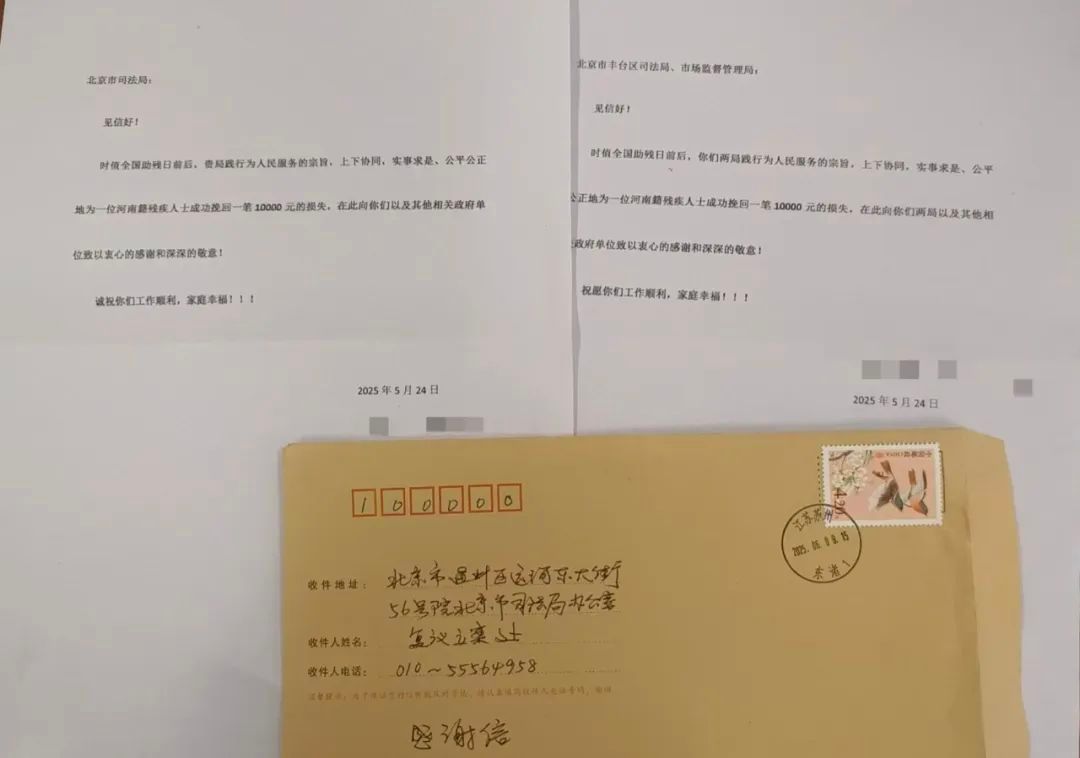 北京市司法局：
见信好！
时值全国助残日前后，贵局践行为人民服务的宗旨，上下协同，实事求是、公平公正
地为一位河南籍残疾人士成功挽回一笔10000元的损失，在此向你们以及其他相关政府单
位致以衷心的感谢和深深的敬意！
诚祝你们工作顺利，家庭幸福！！！
2025年5月24日
北京市丰台区司法局、市场监督管理局：
见信好！
时值全国助残日前后，你们两局践行为人民服务的宗旨，上下协同，实事求是、公平
公正地为一位河南籍残疾人士成功挽回一笔10000元的损失，在此向你们两局以及其他相
政府单位致以衷心的感谢和深深的敬意！
祝愿你们工作顺利，家庭幸福！！！
2025年5月24日
100000
中国邮政 CHINA
4.20
江苏苏州
2025.06.09.15
东港1
收件地址：北京市通州区运河东大街
56号院北京市司法局办公室
收件人姓名：复议立案处
收件人电话：010～55564958
感谢信